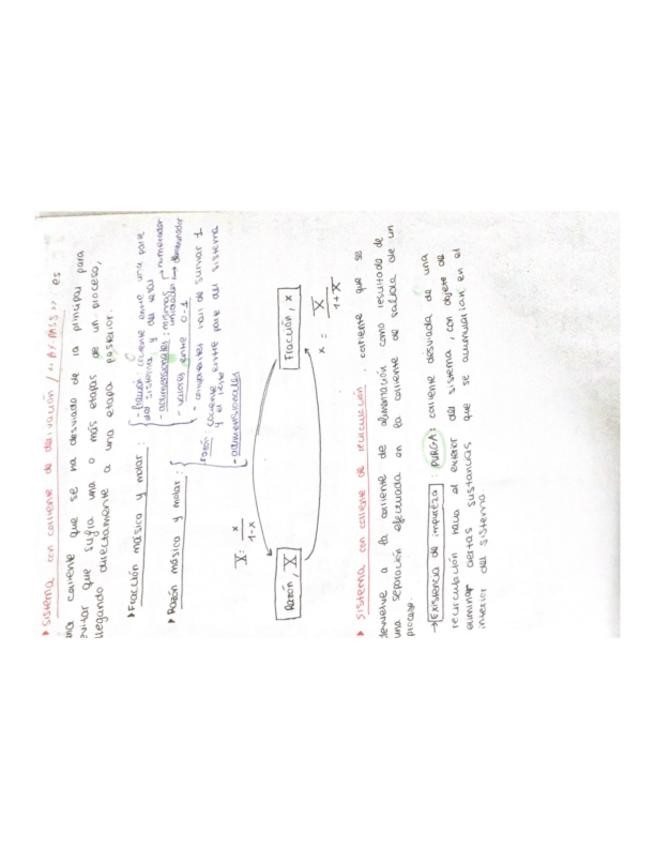 ▸ Sistema con corriente de derivación / "BYPASS" es
una corriente que se ha desviado de la principal para
evitar que sufra una o más etapas de un proceso,
llegando directamente a una etapa posterior.
▸ Fracción másica y molar :
- fracción cociente entre una parte
del sistema, y del total
- adimensionales : mismas unidades numerador denominador
- valores entre 0-1
- componentes han de sumar 1
▸ Razón másica y molar :
razón: cociente entre parte del sistema
y el resto
- adimensionales
X = x / 1-x
Razón, X
Fracción, x
x = X / 1+X
▸ Sistema con corriente de recirculación : corriente que se
devuelve a la corriente de alimentación como resultado de
una separación efectuada en la corriente de salida de un
proceso.
→ Existencia de impureza : PURGA: corriente desviada de una
recirculación hacia el exterior del sistema, con objeto de
eliminar ciertas sustancias que se acumularían en el
interior del sistema